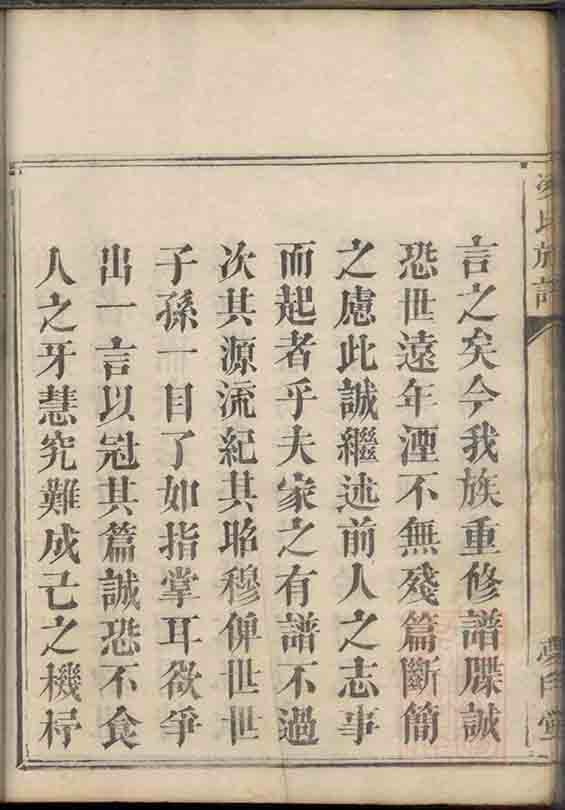 言之矣今我族重修譜牒誠
恐世遠年湮不無殘篇斷簡
之慮此誠繼述前人之志事
而起者乎夫家之有譜不過
次其源流紀其昭穆俾世世
子孫一目了如指掌耳欲爭
出一言以冠其篇誠恐不食
人之牙慧究難成己之機杼
氏族譜
堂